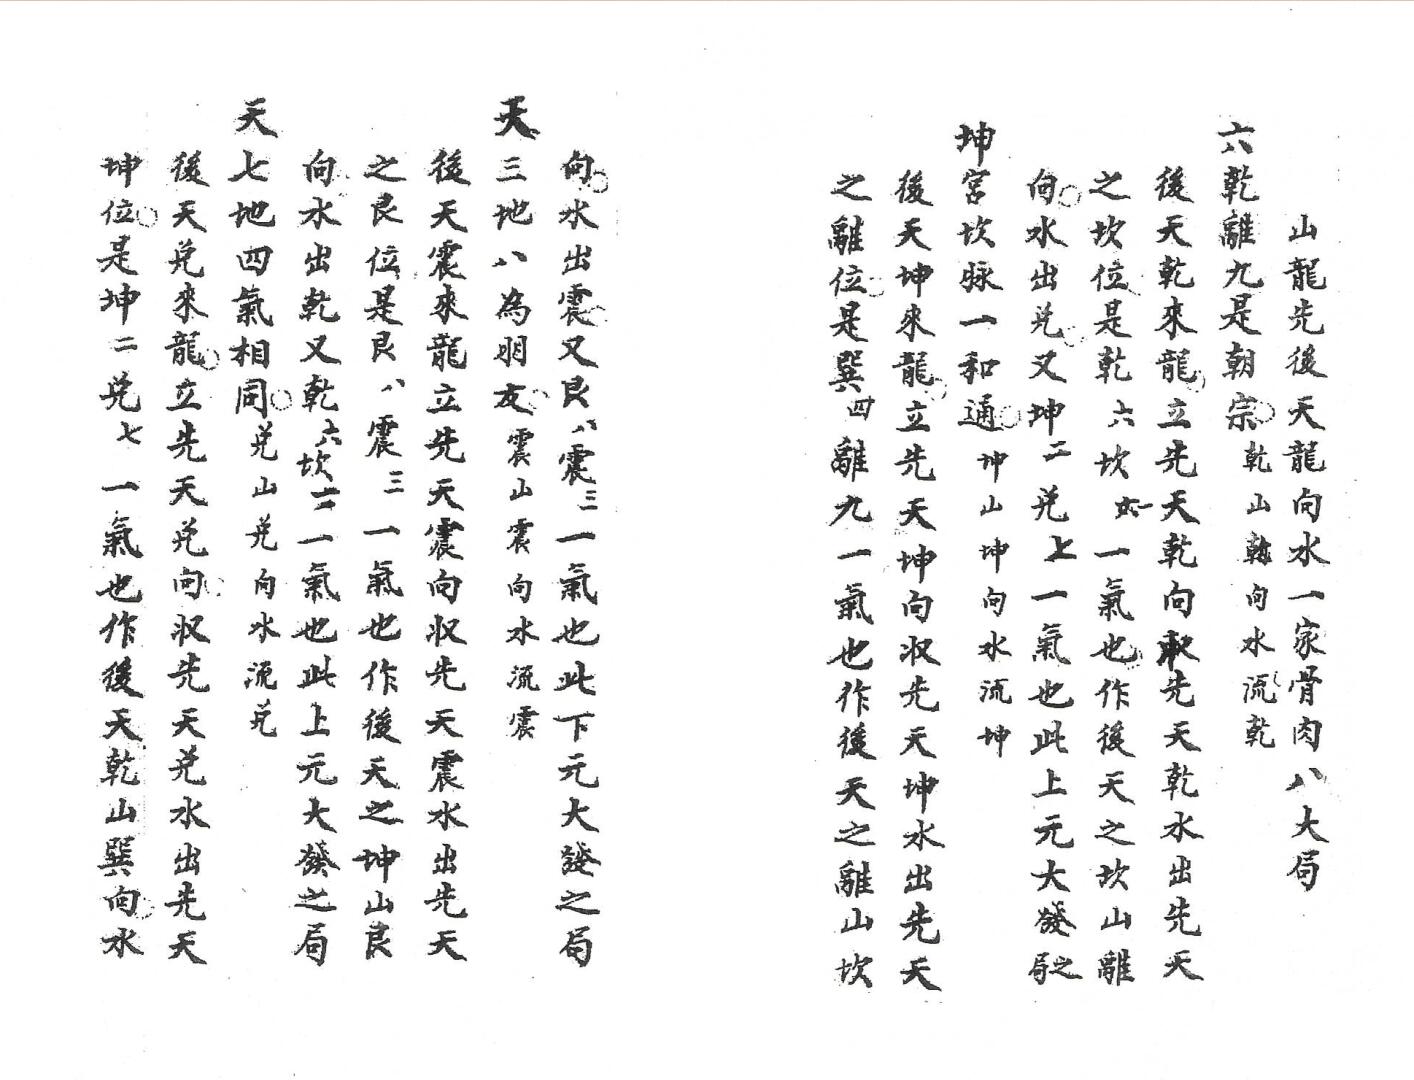 山龍先後天龍向水一家骨肉八大局
六乾離九是朝宗乾山乾向水流乾
後天乾來龍立先天乾向收先天乾水出先天
之坎位是乾六坎一氣也作後天之坎山離
向水出兌又坤二兌七一氣也此上元大發之局
坤宮坎脉一和通坤山坤向水流坤
後天坤來龍立先天坤向収先天坤水出先天
之離位是巽四離九一氣也作後天之離山坎
向水出震又艮八震三一氣也此下元大發之局
天三地八為朋友震山震向水流震
後天震來龍立先天震向収先天震水出先天
之艮位是艮八震三一氣也作後天之坤山艮
向水出乾又乾六坎一氣也此上元大發之局
天七地四氣相同兌山兌向水流兌
後天兌來龍立先天兌向収先天兌水出先天
坤位是坤二兌七一氣也作後天乾山巽向水